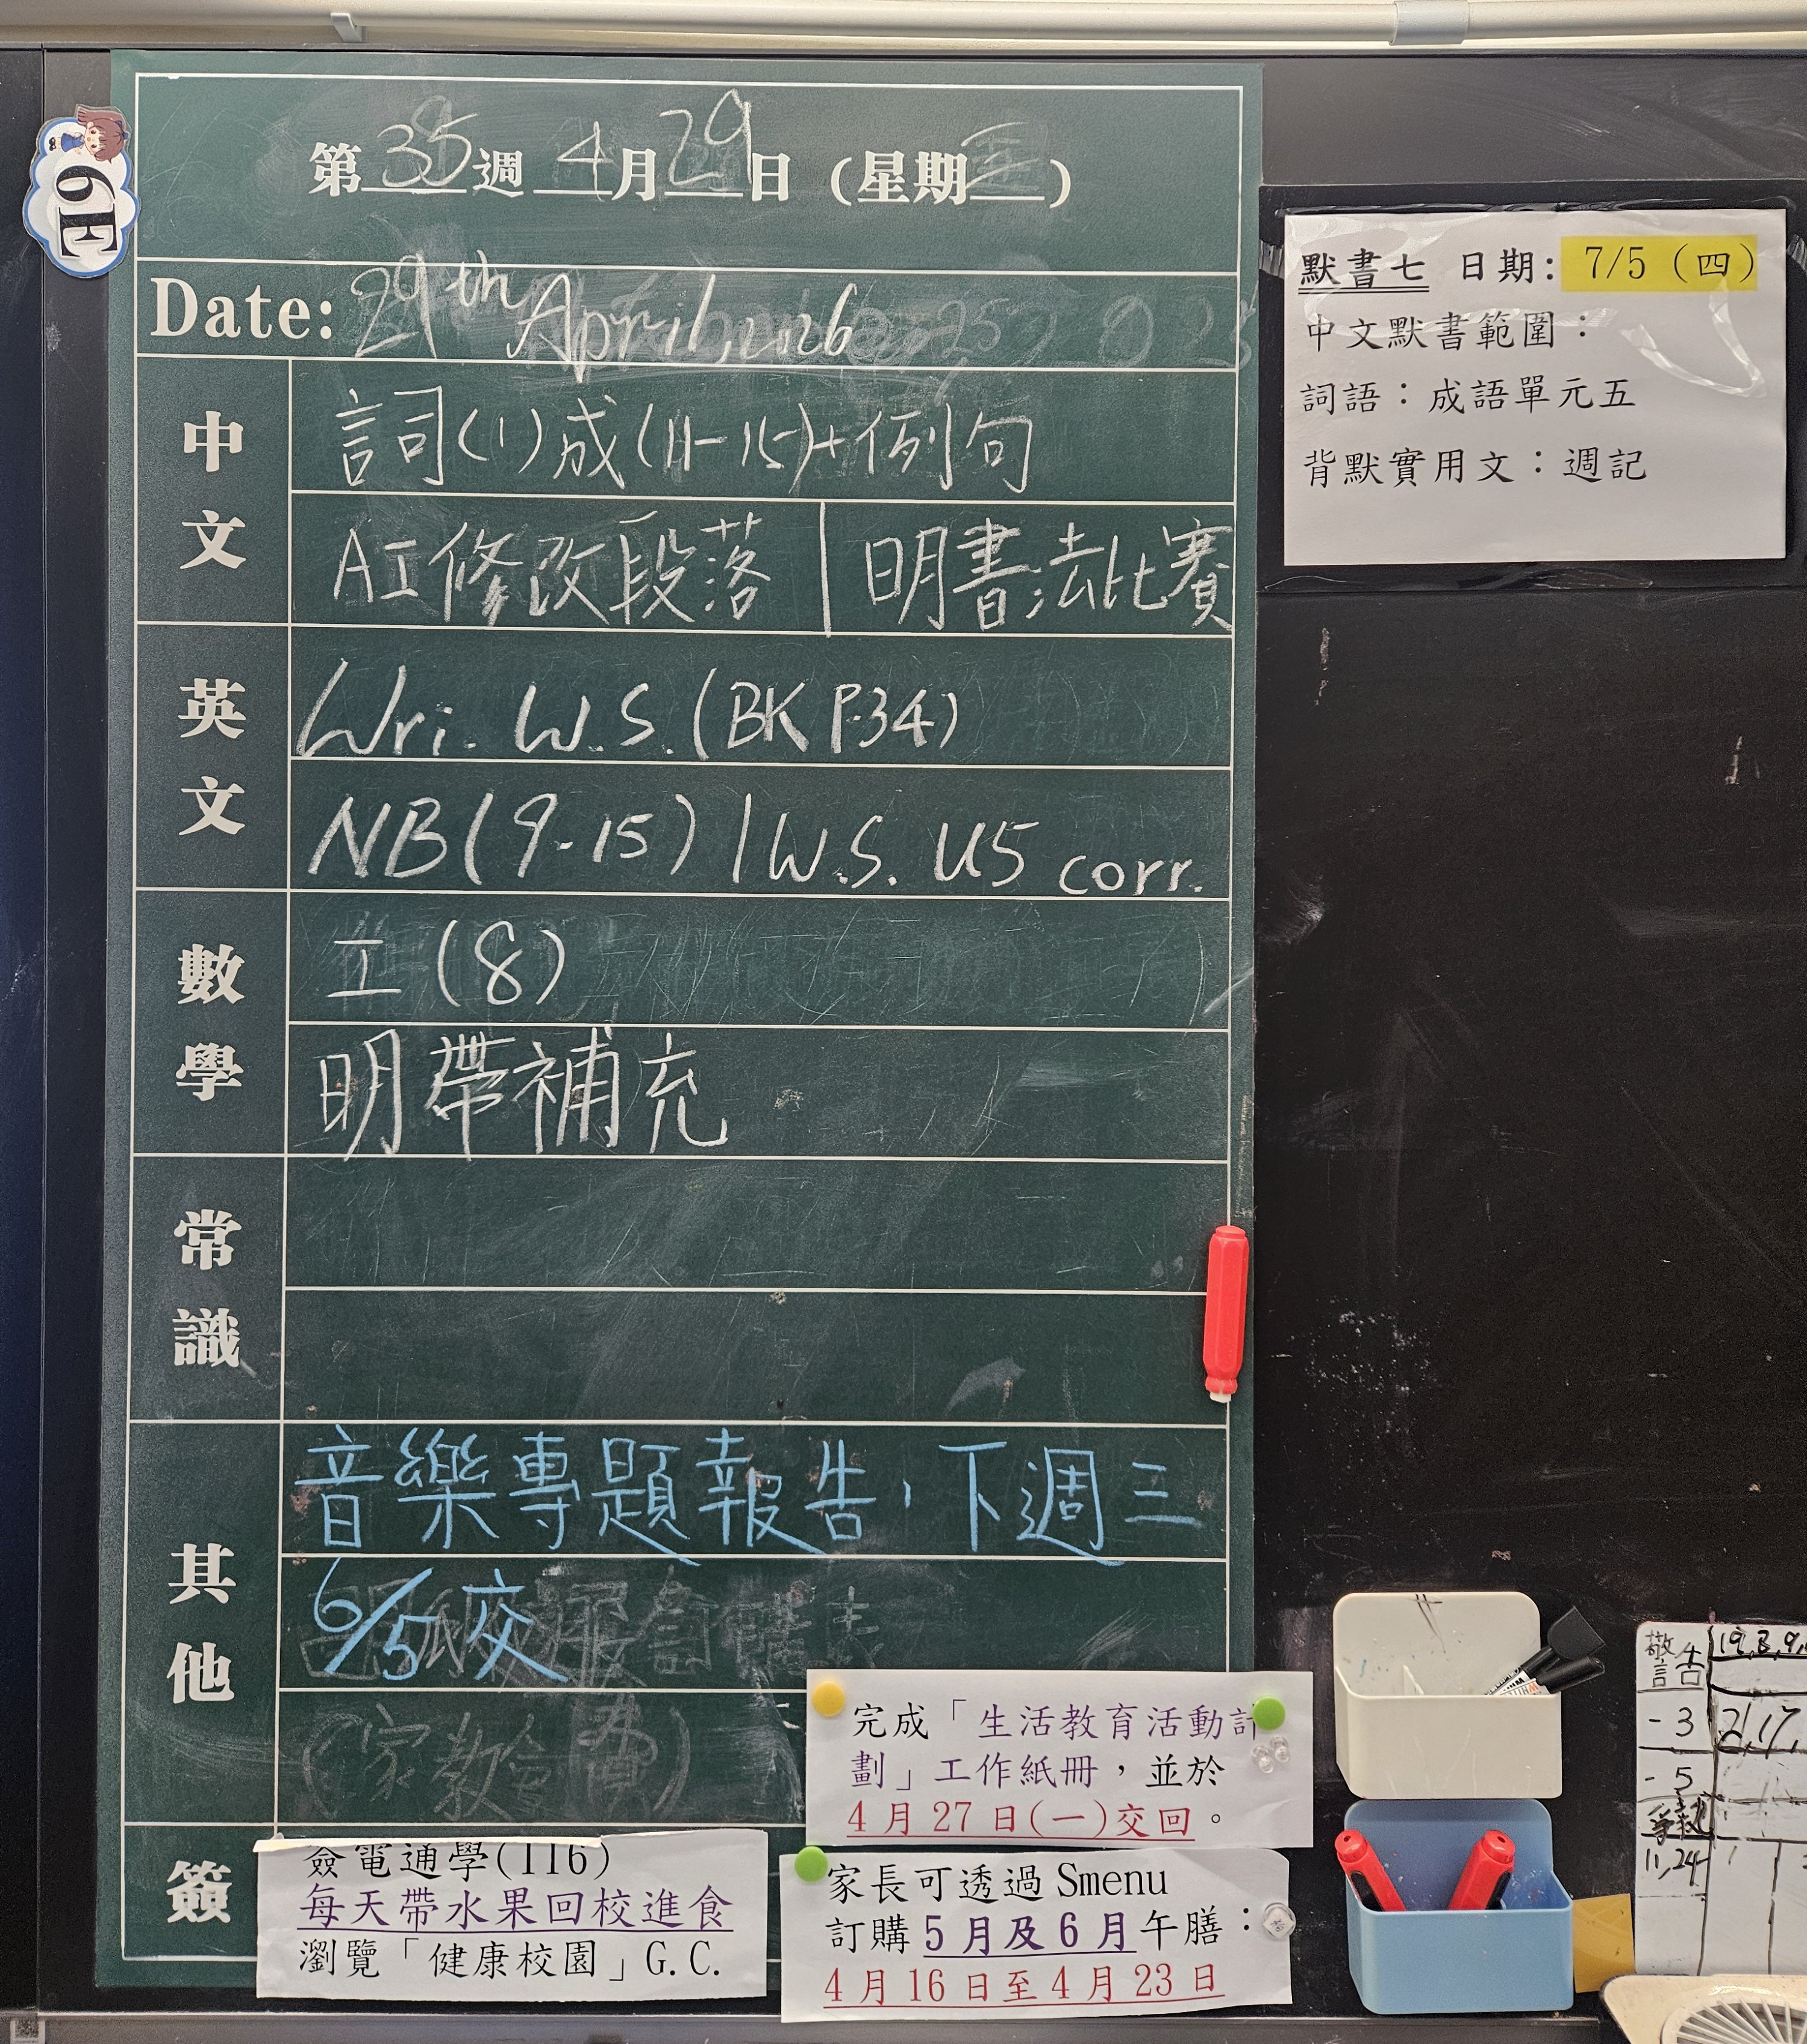 6E
第35週 4月29日 (星期三)
Date: 29th April, 2026
中文
詞(1)成(11-15)+例句
AI修改段落 | 明書法比賽
英文
Wri. W.S. (BK P.34)
NB(9-15) | W.S. U5 corr.
數學
工(8)
明帶補充
常識
其他
音樂專題報告,下週三
6/5交
(家教會
簽
簽電通學(116)
每天帶水果回校進食
瀏覽「健康校園」G.C.
完成「生活教育活動計
劃」工作紙冊,並於
4月27日(一)交回。
家長可透過 Smenu
訂購5月及6月午膳:
4月16日至4月23日
默書七 日期: 7/5 (四)
中文默書範圍:
詞語:成語單元五
背默實用文:週記
警告 19,3,9,
-3 2,17,
-5
11,24